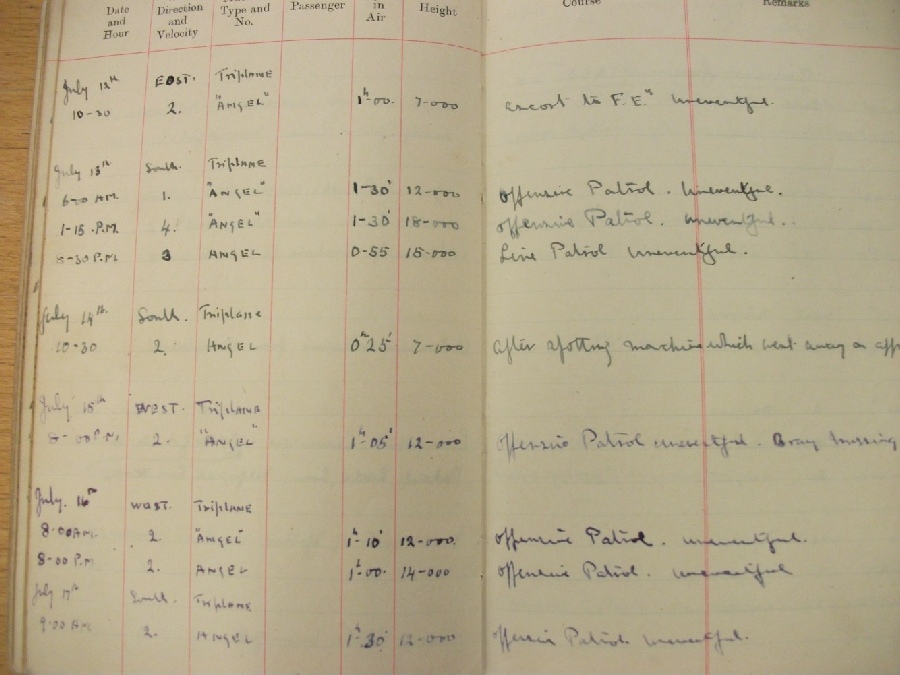 Date and Hour Direction and Velocity Type and No. Passenger in Air Height Course Remarks
July 12th EAST. Triplane
10-30 2. "ANGEL" 1h-00. 7-000 escort to F.E.s uneventful.
July 13th South. Triplane
6-0 AM 1. "ANGEL" 1-30' 12-000 offensive Patrol. Uneventful.
1-15 P.M. 4. "ANGEL" 1-30' 18-000 offensive Patrol. uneventful..
8-30 P.M. 3 ANGEL 0-55 15-000 Line Patrol uneventful.
July 14th. South. Triplane
10-30 2. ANGEL 0h 25' 7-000 after spotting machine which went away on
July 15th WEST. Triplane
8-00 P.M. 2. "ANGEL" 1h-05' 12-000 offensive Patrol uneventful. Bray missing
July. 16th WEST. Triplane
8:00 AM. 2. "ANGEL" 1h-10' 12-000. offensive Patrol. uneventful.
8-00 P.M 2. ANGEL 1h-00. 14-000 offensive Patrol. uneventful
July 17th South. Triplane
9:00 AM 2. ANGEL 1h.30' 12-000 offensive Patrol. uneventful.